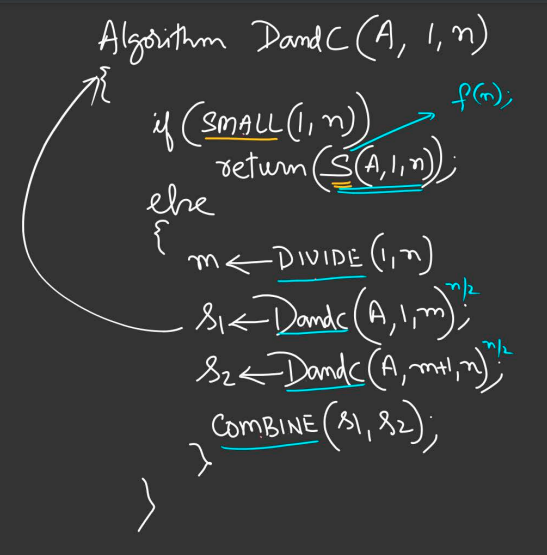 Algorithm DandC (A, 1, n)
{
if (SMALL (1, n)) f(n);
return (S(A, 1, n));
else
{
m ← DIVIDE (1, n)
S1 ← DandC (A, 1, m); n/2
S2 ← DandC (A, m+1, n); n/2
COMBINE (S1, S2);
}
}